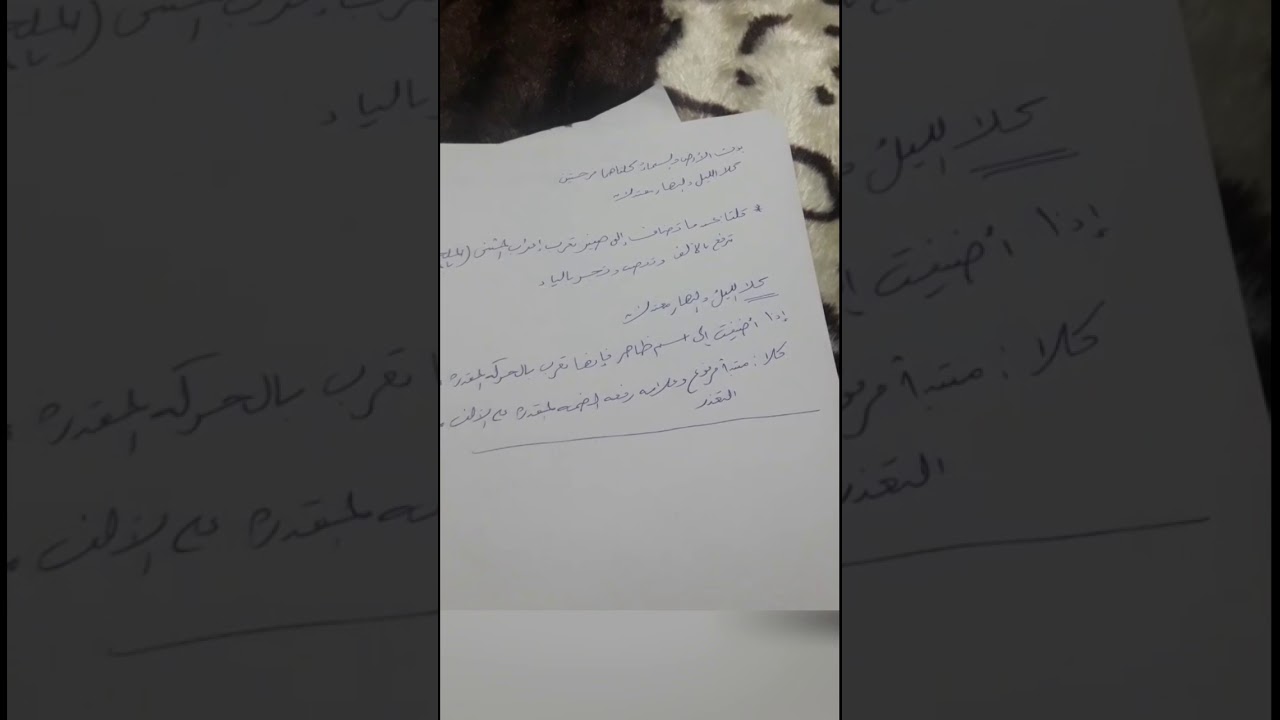 بدت الأرض والسماء كلتاهما مرحتين
كلا الليل والنهار معتدلان
* كلتا عندما تضاف إلى ضمير تعرب إعراب المثنى
ترفع بالألف وتنصب وتجر بالياء
كلا الليل والنهار معتدلان
إذا أضيفت إلى اسم ظاهر فإنها تعرب بالحركة المقدرة
كلا : مبتدأ مرفوع وعلامة رفعه الضمة المقدرة على الألف
التعذر